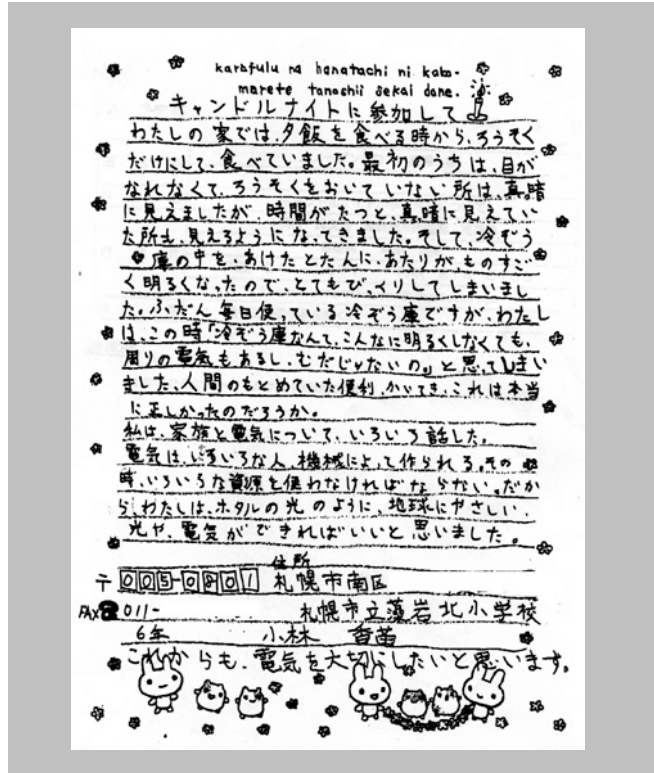 karafulu na hanatachi ni kako-
marete tanoshii sekai dane.
キャンドルナイトに参加して
わたしの家では、夕飯を食べる時から、ろうそく
だけにして、食べていました。最初のうちは、目が
なれなくて、ろうそくをおいていない所は、真暗
に見えましたが、時間がたつと、真暗に見えてい
た所も、見えるようになってきました。そして、冷ぞう
庫の中を、あけたとたんに、あたりが、ものすご
く明るくなったので、とてもびっくりしてしまいまし
た。ふだん毎日使っている冷ぞう庫ですが、わたし
は、この時「冷ぞう庫なんて、こんなに明るくしなくても、
周りの電気もあるし、むだじゃないの。」と思ってしまい
ました、人間のもとめていた便利、かいてき、これは本当
に正しかったのだろうか。
私は、家族と電気について、いろいろ話した。
電気は、いろいろな人、機械によって作られる。その
時、いろいろな資源を使わなければならない。だか
ら、わたしは、ホタルの光のように、地球にやさしい、
光や、電気ができればいいと思いました。
住所
〒005-0801 札幌市南区
FAX☎011- 札幌市立藻岩北小学校
6年 小林 香苗
これからも、電気を大切にしたいと思います。